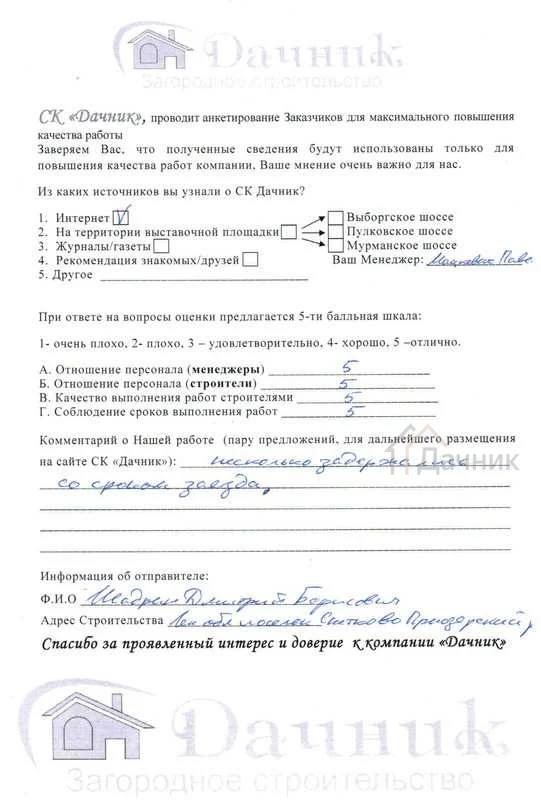 Дачник
Загородное строительство
СК «Дачник», проводит анкетирование Заказчиков для максимального повышения
качества работы
Заверяем Вас, что полученные сведения будут использованы только для
повышения качества работ компании, Ваше мнение очень важно для нас.
Из каких источников вы узнали о СК Дачник?
1. Интернет V Выборгское шоссе
2. На территории выставочной площадки Пулковское шоссе
3. Журналы/газеты Мурманское шоссе
4. Рекомендация знакомых/друзей Ваш Менеджер:
5. Другое
При ответе на вопросы оценки предлагается 5-ти балльная шкала:
1- очень плохо, 2- плохо, 3 – удовлетворительно, 4- хорошо, 5 –отлично.
А. Отношение персонала (менеджеры) 5
Б. Отношение персонала (строители) 5
В. Качество выполнения работ строителями 5
Г. Соблюдение сроков выполнения работ 5
Комментарий о Нашей работе (пару предложений, для дальнейшего размещения
на сайте СК «Дачник»): несколько задержались
Дачник
со сроком заезда,
Информация об отправителе:
Ф.И.О Дмитрий Борисович
Адрес Строительства Лен обл
Спасибо за проявленный интерес и доверие к компании «Дачник»
Дачник
Загородное строительство